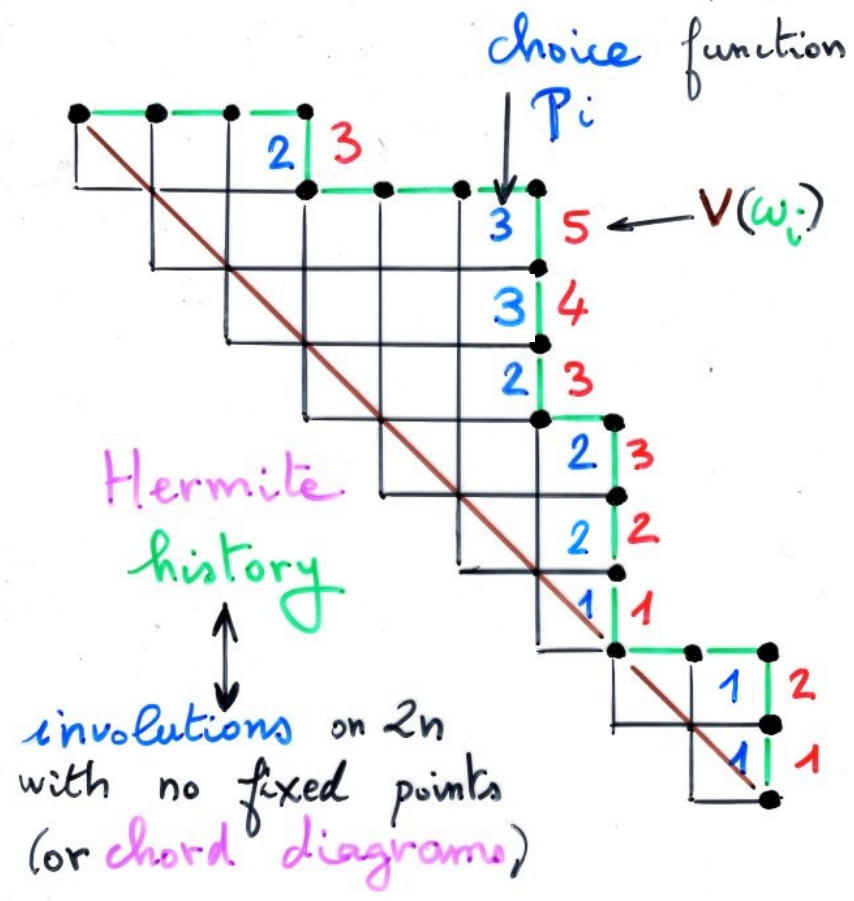 choice function
Pi
2 3
3 5
V(ωi)
3 4
2 3
2 3
Hermite
2 2
history
1 1
1 2
involutions on 2n
1 1
with no fixed points
(or chord diagrams)